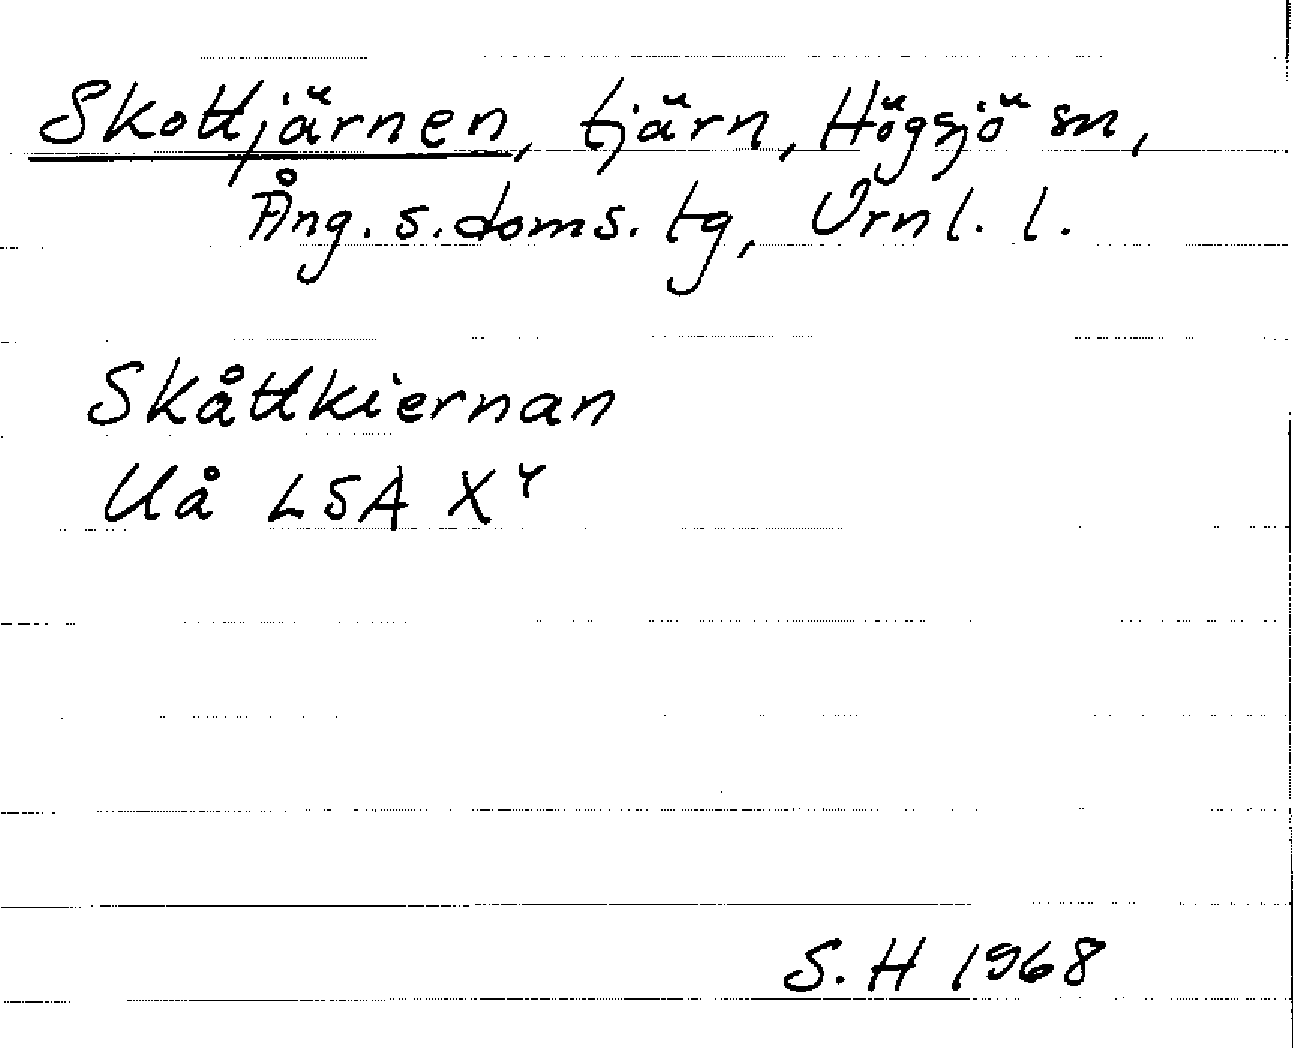 Skottjärnen, tjärn, Högsjö sn,
Ång. s. doms. tg, Vrnl. l.
Skåttkiernan
Uå LSA X⁴
S. H 1968